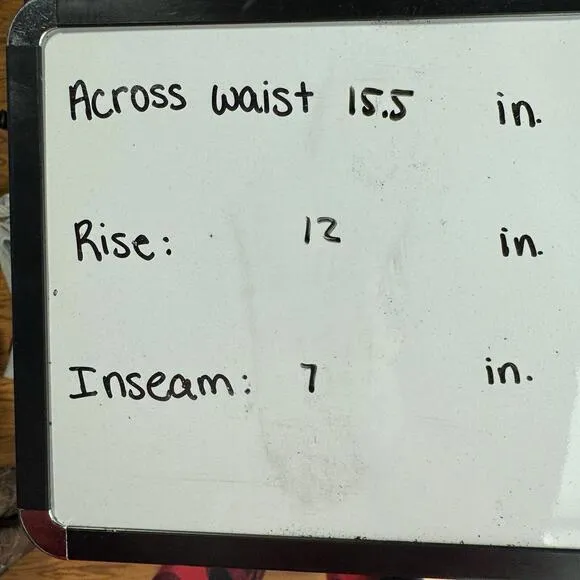 Across waist 15.5 in.
Rise: 12 in.
Inseam: 7 in.